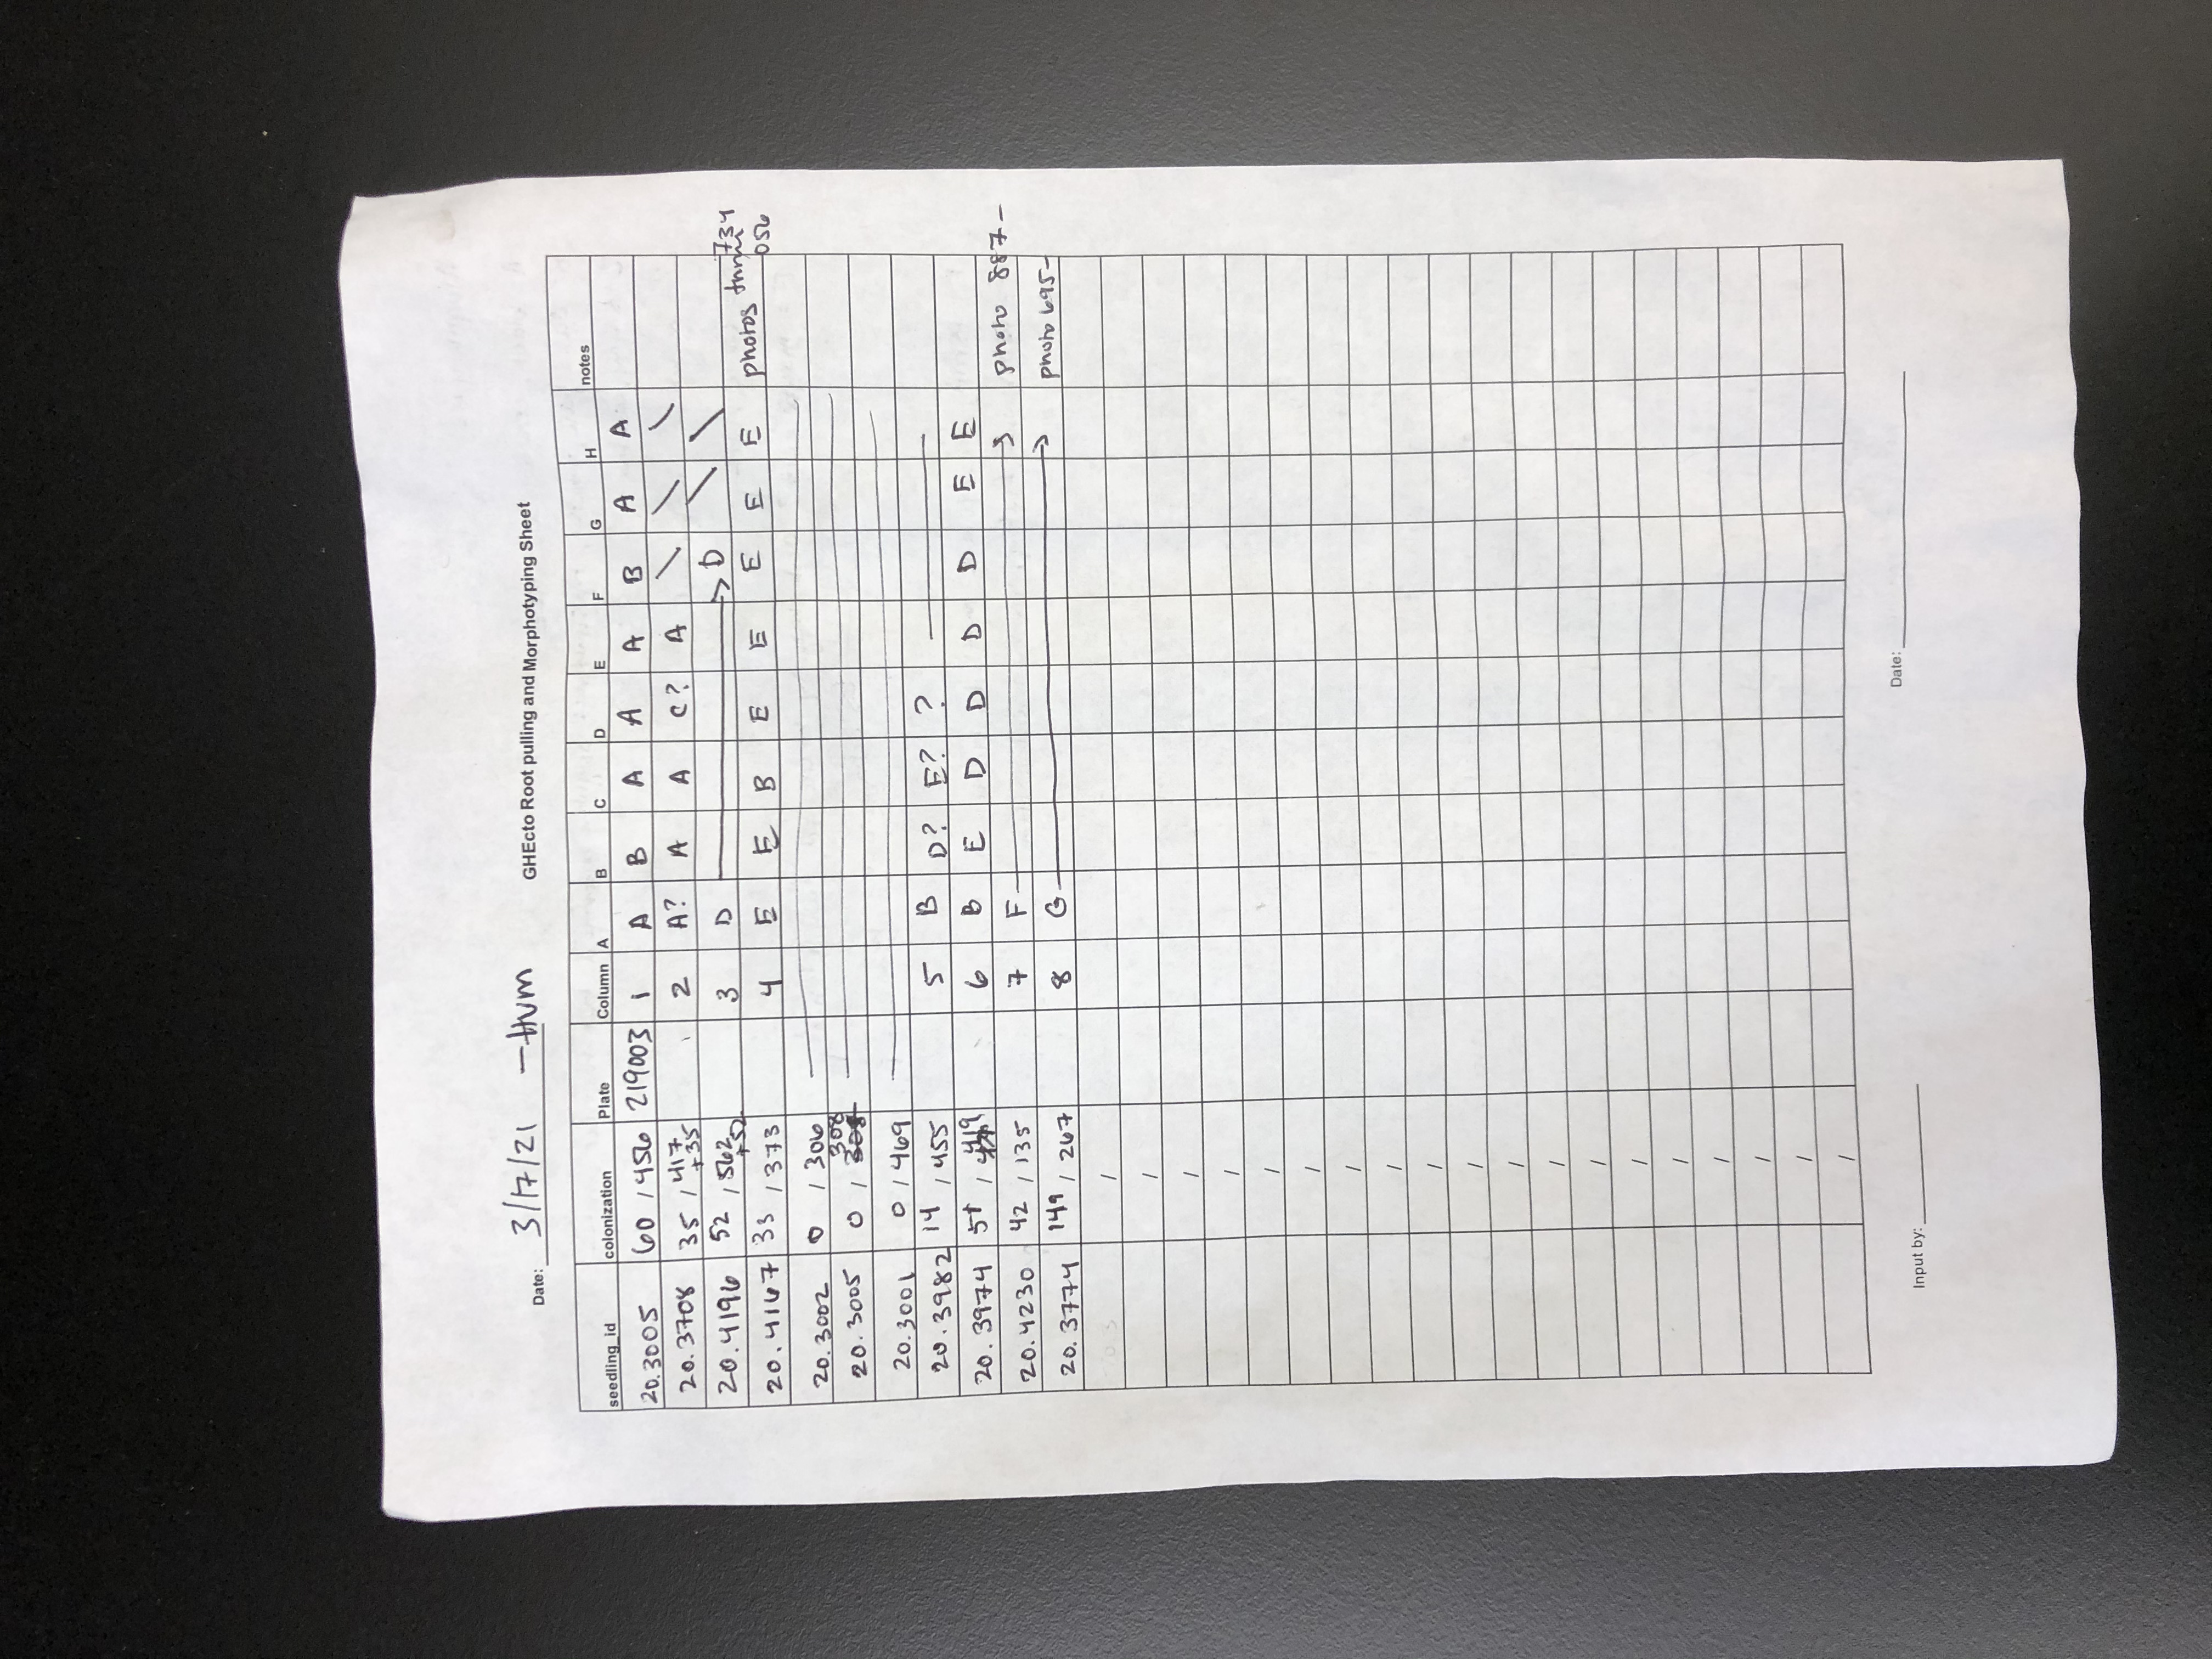 Date: 3/17/21 -HVM GHEcto Root pulling and Morphotyping Sheet
seedling_id colonization Plate Column A B C D E F G H notes
20.3005 60 / 456 219003 1 A B A A A B A A
20.3708 35 / 417 +35 2 A? A A C? A \ \ \
20.4196 52 / 562 +52 3 D → D \ \
20.4167 33 / 373 4 E E B E E E E E photos 734 056
20.3002 0 / 306
20.3005 0 / 308
20.3001 0 / 469
20.3982 14 / 455 5 B D? E? ? —
20.3974 / 419 6 B E D D D D E E
20.4230 42 / 135 7 F → photo 887-
20.3774 149 / 267 8 G → photo 695-
/
/
/
/
/
/
/
/
/
/
/
/
/
/
/
/
/
/
/
Input by: Date: